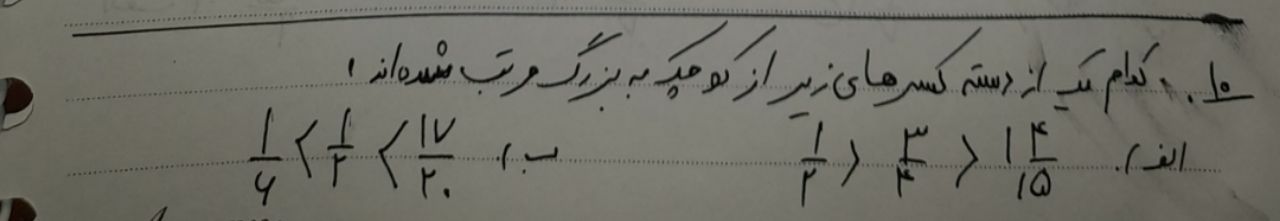 ۱۰. کدام یک از دسته کسرهای زیر از کوچک به بزرگ مرتب شده‌اند؟
الف) ۱ ۴/۱۵ < ۳/۴ < ۱/۲ ب) ۱۷/۲۰ > ۱/۲ > ۱/۶